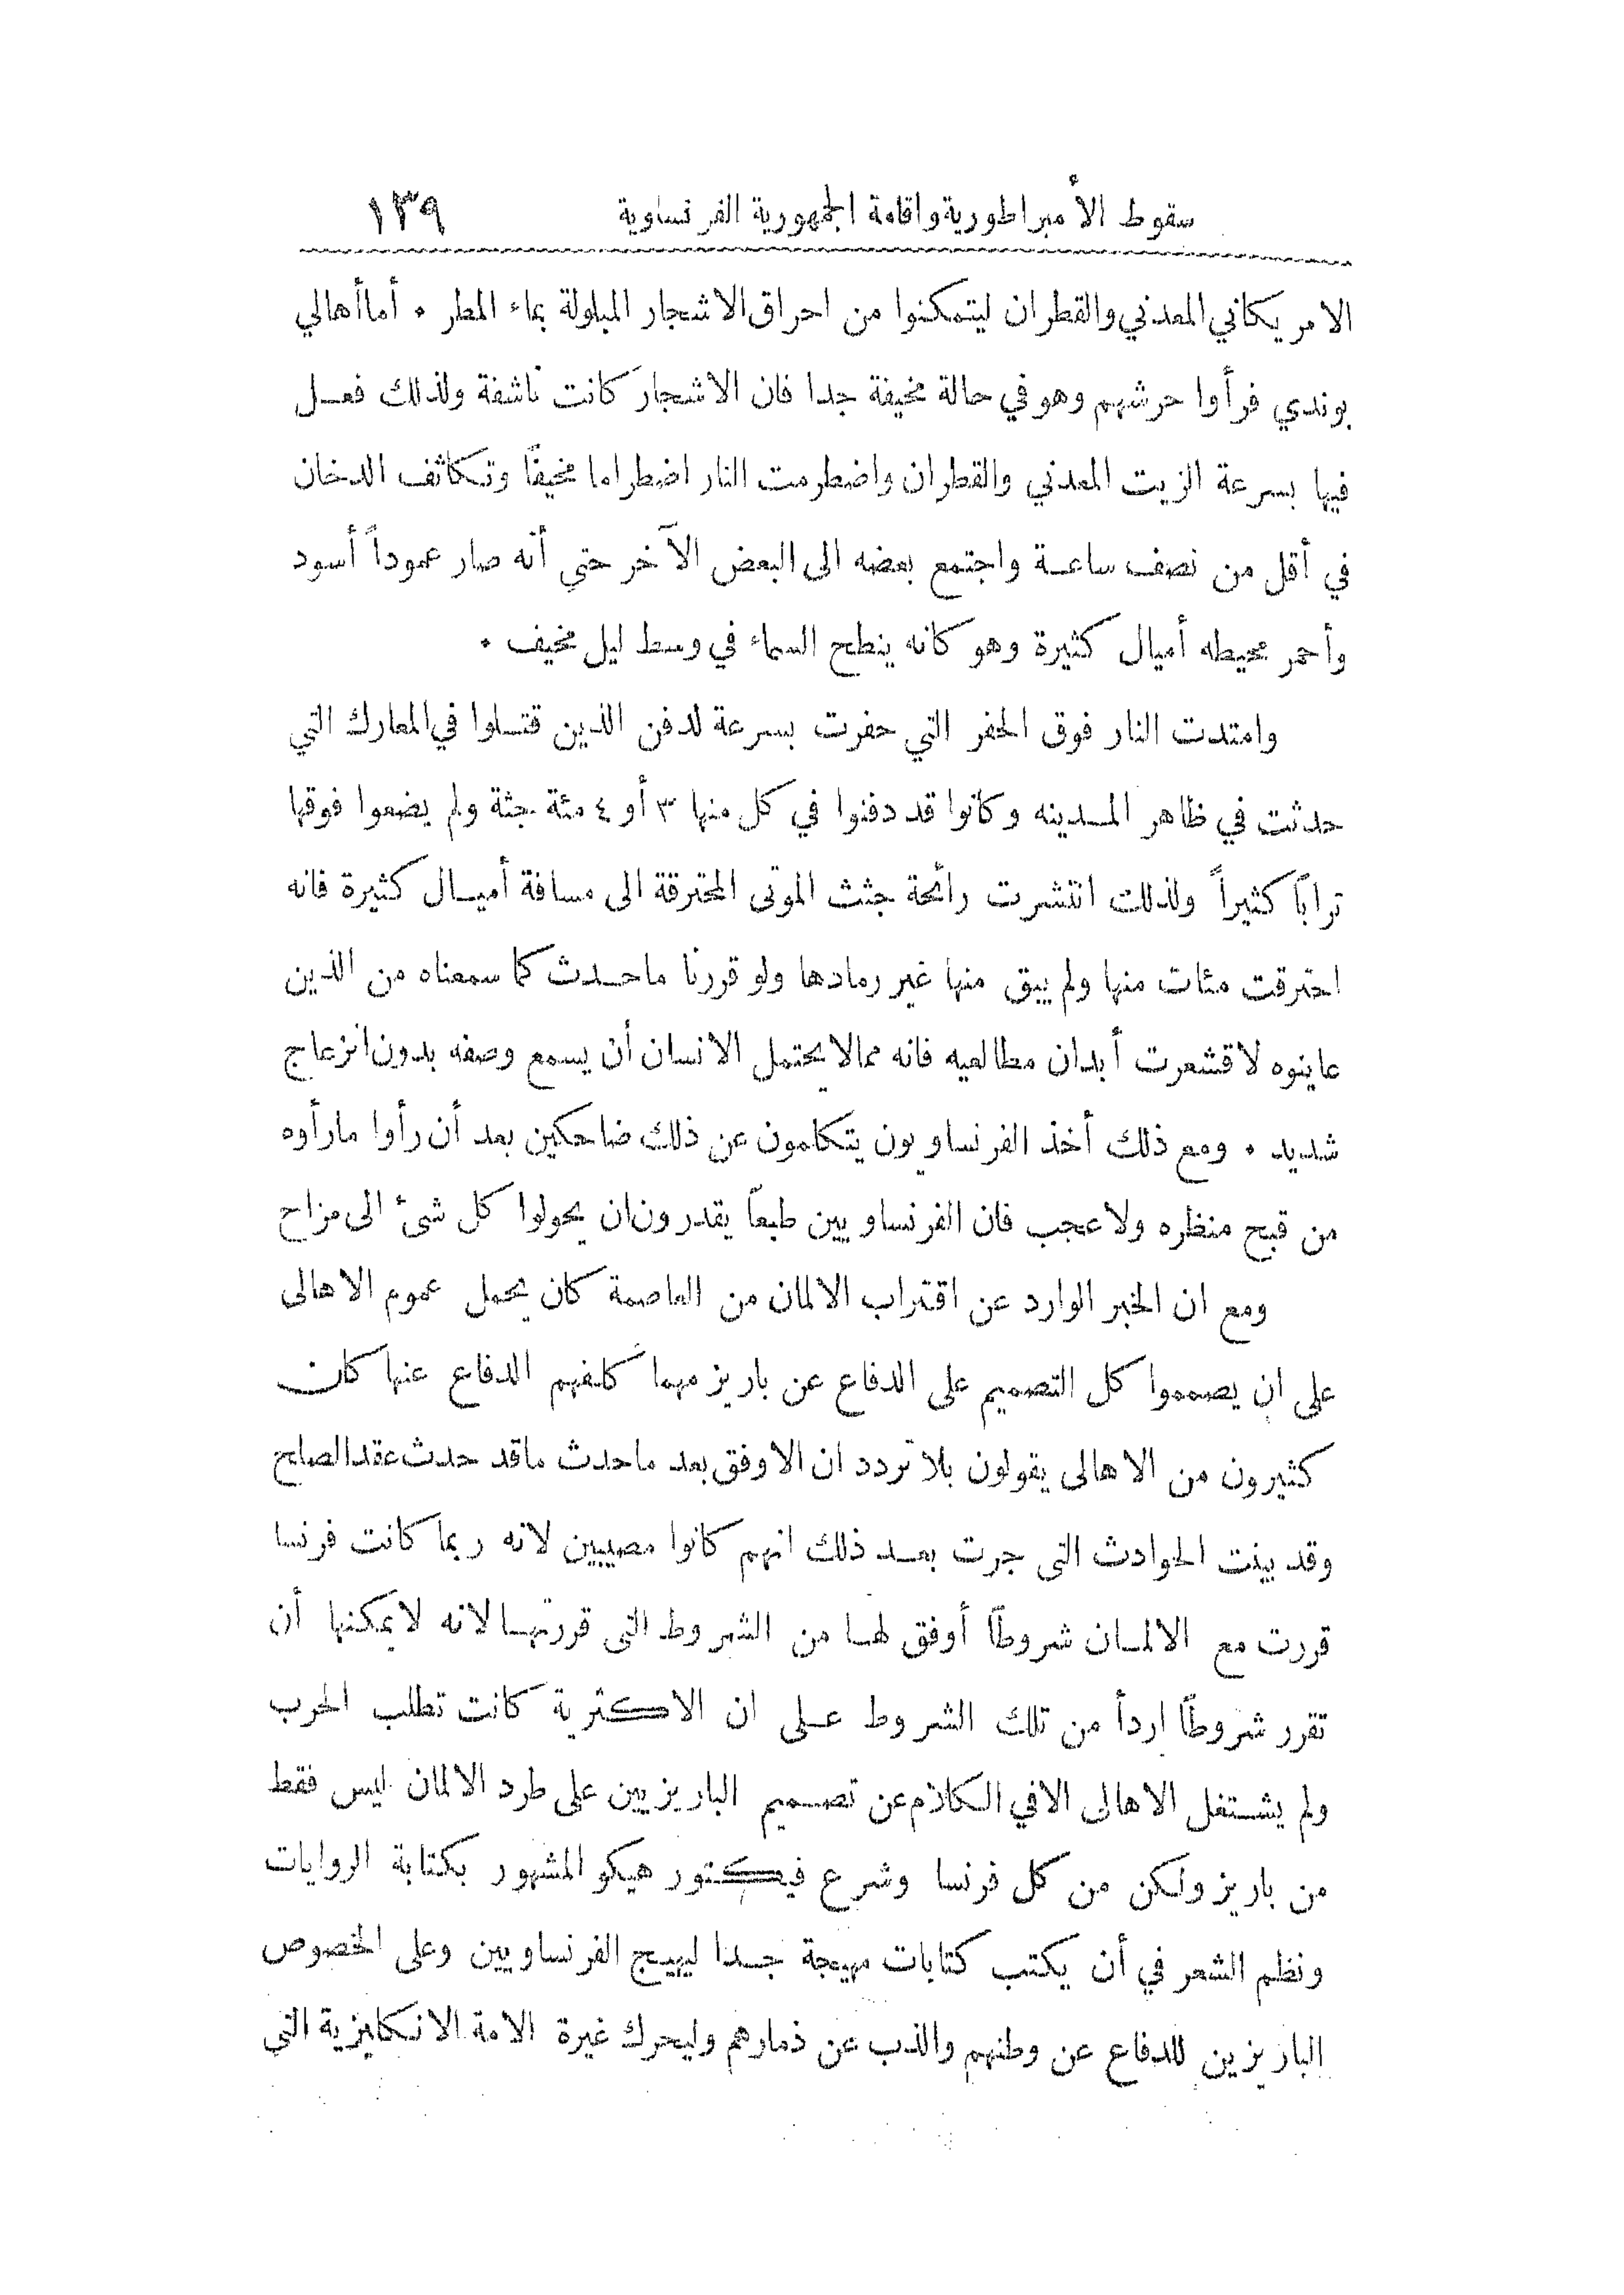 سقوط الأمبراطورية واقامة الجمهورية الفرنساوية ١٣٩
الامريكاني المعدني والقطران ليتمكنوا من احراق الاشجار المبلولة بماء المطر ٠ أما أهالي
بوندي فرأوا حرشهم وهو في حالة مخيفة جدا فان الاشجار كانت ناشفة ولذلك فعل
فيها بسرعة الزيت المعدني والقطران واضطرمت النار اضطراما مخيفًا وتكاثف الدخان
في أقل من نصف ساعة واجتمع بعضه الى البعض الآخر حتى أنه صار عموداً أسود
وأحمر محيطه أميال كثيرة وهو كانه ينطح السماء في وسط ليل مخيف ٠
وامتدت النار فوق الحفر التي حفرت بسرعة لدفن الذين قتلوا في المعارك التي
حدثت في ظاهر المدينه وكانوا قد دفنوا في كل منها ٣ أو ٤ مئة جثة ولم يضعوا فوقها
ترابًا كثيراً ولذلك انتشرت رائحة جثث الموتى المحترقة الى مسافة أميال كثيرة فانه
احترقت مئات منها ولم يبق منها غير رمادها ولو قررنا ماحدث كما سمعناه من الذين
عاينوه لاقشعرت أبدان مطالعيه فانه ممالا يحتمل الانسان أن يسمع وصفه بدون انزعاج
شديد ٠ ومع ذلك أخذ الفرنساويون يتكلمون عن ذلك ضاحكين بعد أن رأوا مارأوه
من قبح منظره ولا عجب فان الفرنساويين طبعاً يقدرون ان يحولوا كل شئ الى مزاح
ومع ان الخبر الوارد عن اقتراب الالمان من العاصمة كان يحمل عموم الاهالى
على ان يصمموا كل التصميم على الدفاع عن باريز مهما كلفهم الدفاع عنها كان
كثيرون من الاهالى يقولون بلا تردد ان الاوفق بعد ماحدث ماقد حدث عقد الصلح
وقد بينت الحوادث التى جرت بعد ذلك انهم كانوا مصيبين لانه ربما كانت فرنسا
قررت مع الالمان شروطًا أوفق لها من الشروط التى قررتها لانه لايمكنها أن
تقرر شروطًا اردأ من تلك الشروط على ان الاكثرية كانت تطلب الحرب
ولم يشتغل الاهالى الا في الكلام عن تصميم الباريزيين على طرد الالمان ليس فقط
من باريز ولكن من كل فرنسا وشرع فيكتور هيكو المشهور بكتابة الروايات
ونظم الشعر في أن يكتب كتابات مهيجة جدا ليهيج الفرنساويين وعلى الخصوص
الباريزين للدفاع عن وطنهم والذب عن ذمارهم وليحرك غيرة الامة الانكليزية التي